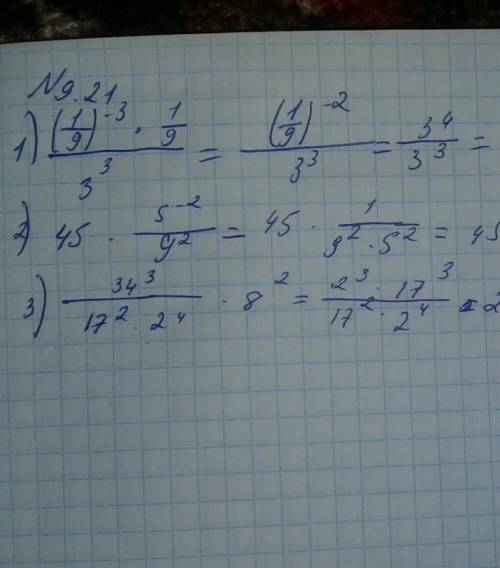 N 9.21
1) ((1/9)^-3 · 1/9) / 3^3 = (1/9)^-2 / 3^3 = 3^4 / 3^3 =
2) 45 · 5^-2 / 9^2 = 45 · 1 / (9^2 · 5^2) = 45
3) 34^3 / (17^2 · 2^4) · 8^2 = (2^3 · 17^3) / (17^2 · 2^4) · 2